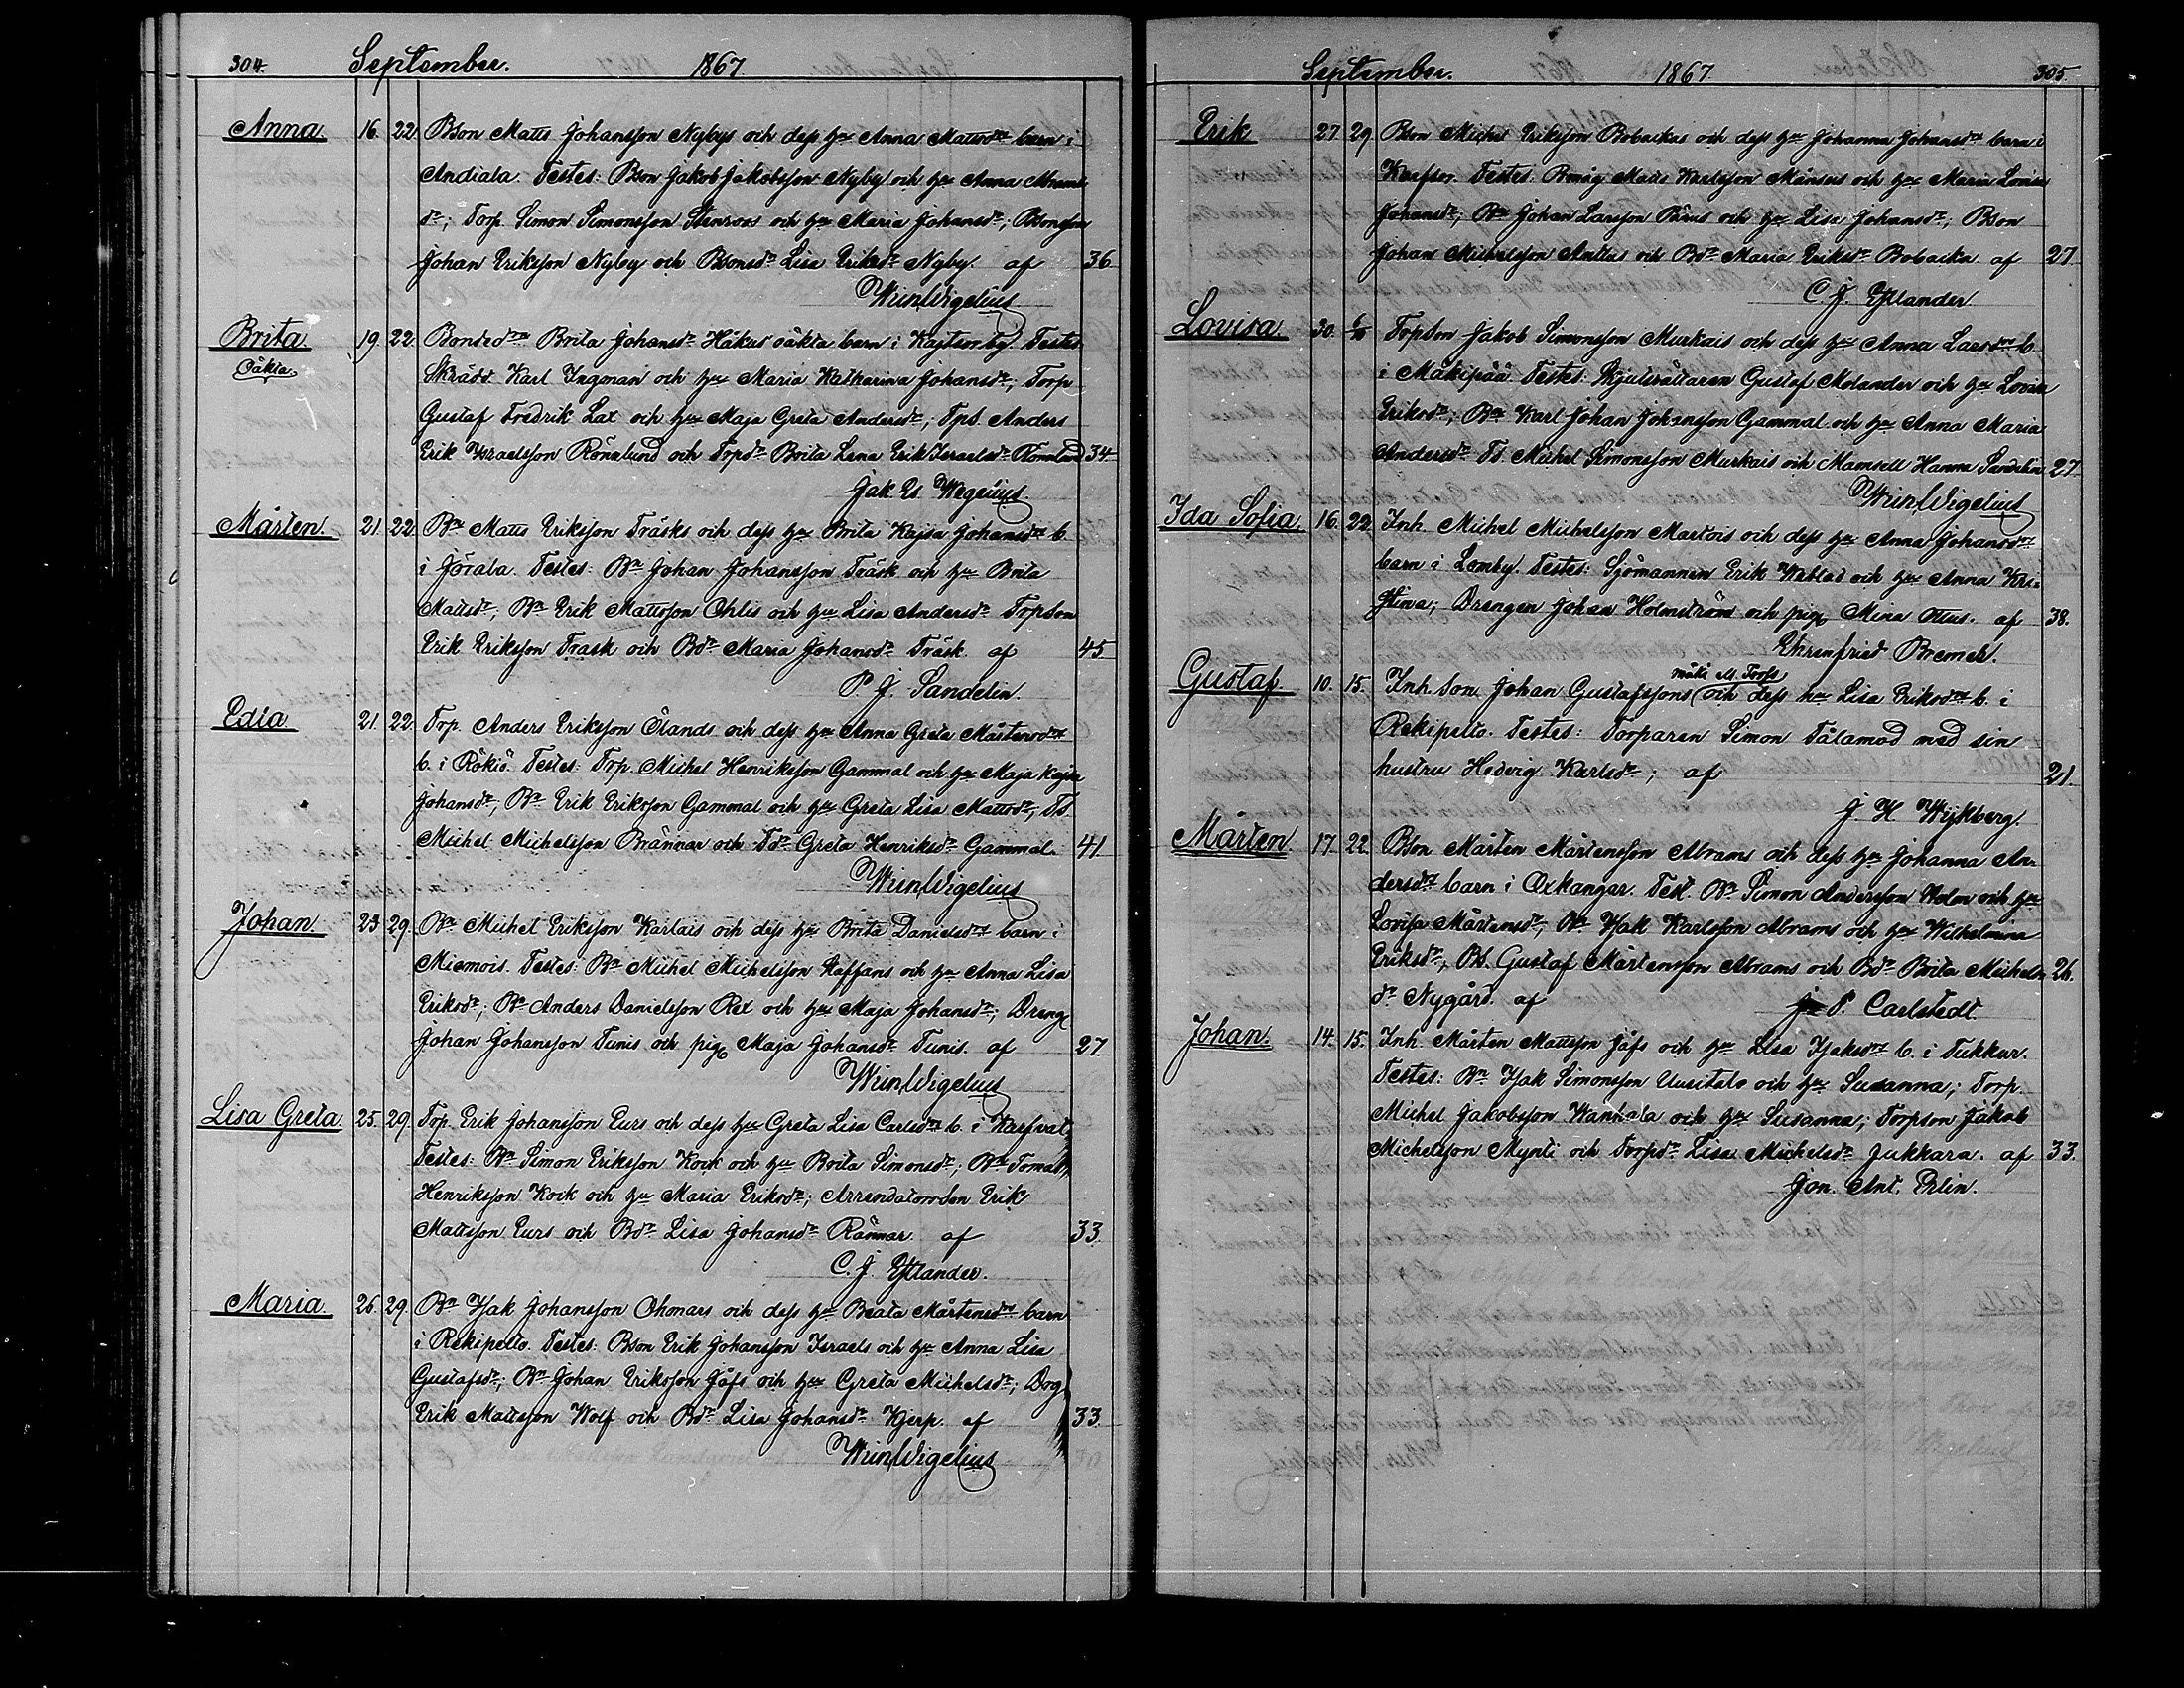 304. September. 1867.
Anna. 16. 22. Bson Matts Johansson Nybys och dess hu Anna Mattsdrs barn i
Andiala. Testes: Bson Jakob Jakobsson Nyby och hu Anna Abrams
dr; Torp. Simon Simonsson Stenroos och hu Maria Johansdr; Bonson
Johan Eriksson Nyby och Bonsdr Lisa Eriksdr Nyby. af 36
Wigelius
Brita 19 22. Bondedrn Brita Johansdr Håkus oäkta barn i Kajtsor by. Testes
Oäkta. Skrädd. Karl Ingman och hu Maria Katharina Johansdr; Torp
Gustaf Fredrik Lax och hu Maja Greta Andersdr; Tps. Anders
Erik Israelsson Rönnlund och Torpdr Brita Lena Erik Israelsdr Rönnlund 34
Jak Es. Wegelius.
Mårten. 21. 22. Bn Matts Eriksson Träsks och dess hu Brita Kajsa Johansdrs b.
i Jörala. Testes: Bn Johan Johansson Träsk och hu Brita
Mattsdr; Bn Erik Mattsson Ohlis och hu Lisa Andersdr TorpSon
Erik Eriksson Träsk och Bdr Maria Johansdr Träsk. af 45
P. J. Sandelin.
Edla 21. 22. Torp. Anders Eriksson Ölands och dess hu Anna Greta Mårtensdrs
b. i Rökiö. Testes: Torp. Michel Henriksson Gammal och hu Maja Kajsa
Johansdr; Bn Erik Eriksson Gammal och hu Greta Lisa Mattsdr; Ts.
Michel Michelsson Brännar och Tdr Greta Henriksdr Gammal. 41.
Wigelius
Johan. 23 29. Bn Michel Eriksson Karlais och dess hu Brita Danielsdrs barn i
Miemois. Testes: Bn Michel Michelsson Staffans och hu Anna Lisa
Eriksdr; Bn Anders Danielsson Rex och hu Maja Johansdr; Dreng
Johan Johansson Tunis och pig Maja Johansdr Tunis. af 27
Wigelius
Lisa Greta. 25. 29. Torp. Erik Johansson Eurs och dess hu Greta Lisa Carlsdrs b. i Karfvat.
Testes: Bn Simon Eriksson Kock och hu Brita Simonsdr; Bn Tomas
Henriksson Kock och hu Maria Eriksdr; ArrendatorsSon Erik
Mattsson Eurs och Bdr Lisa Johansdr Rännar. af 33.
C. J. Estlander.
Maria. 26. 29. Bn Isak Johansson Ohmars och dess hu Beata Mårtensdrs barn
i Rekipelto. Testes: Bson Erik Johansson Israels och hu Anna Lisa
Gustafsdr; Bn Johan Eriksson Jåfs och hu Greta Michelsdr; Drg
Erik Mattsson Wolf och Bdr Lisa Johansdr Hjerp. af 33.
Wigelius
September. 1867. 305.
Erik 27. 29 Bson Michel Eriksson Bobackas och dess hu Johanna Johansdrs barn i
Karfsor. Testes: Matts Karlsson Månsus och hu Maria Lovisa
Johansdr; Bn Johan Larsson Pärus och hu Lisa Johansdr; Bson
Johan Michelsson Anttus och Bdr Maria Eriksdr Bobacka af 27.
C. J. Estlander
Lovisa. 30. 6/10 TorpSon Jakob Simonsson Murkais och dess hu Anna Larsdrs b.
i Mäkipää. Testes: Skjutsrättaren Gustaf Molander och hu Lovisa
Eriksdr; Bn Karl Johan Johansson Gammal och hu Anna Maria
Andersdr Ts. Michel Simonsson Murkais och Mamsell Hanna Sandelin 27.
Wigelius
Ida Sofia 16. 22. Inh. Michel Michelsson Martois och dess hu Anna Johansdrs
barn i Lomby. Testes: Sjömannen Erik Weblad och hu Anna Kri-
stina; Drengen Johan Holmström och pig Mina Ottus. af 38.
Ehrenfried Bremer.
Gustaf. 10. 15. Inh. Son Johan Gustafssons måki M. Torfs och dess hu Lisa Eriksdrs b. i
Rekipelto. Testes: Torparen Simon Tålamod med sin
hustru Hedvig Karlsdr; af 21.
J. H Wijkberg.
Mårten. 17. 22. Bson Mårten Mårtensson Abrams och dess hu Johanna An-
dersdrs barn i Oxkangar. Test. Bn Simon Andersson Holm och hu
Lovisa Mårtensdr; Bn Isak Karlsson Abrams och hu Wilhelmina
Eriksdr; Bs. Gustaf Mårtensson Abrams och Bdr Brita Michels 26.
dr Nygård. af P. Carlstedt
Johan. 14. 15. Inh. Mårten Mattsson Jåfs och hu Lisa Isaksdrs b. i Tukkur.
Testes: Bn Isak Simonsson Uusitalo och hu Susanna; Torp.
Michel Jakobsson Wanhala och hu Susanna; Torpson Jakob
Michelsson Mynti och Torpdr Lisa Michelsdr Jukkara. af 33.
Jon. Ant. Erlin.